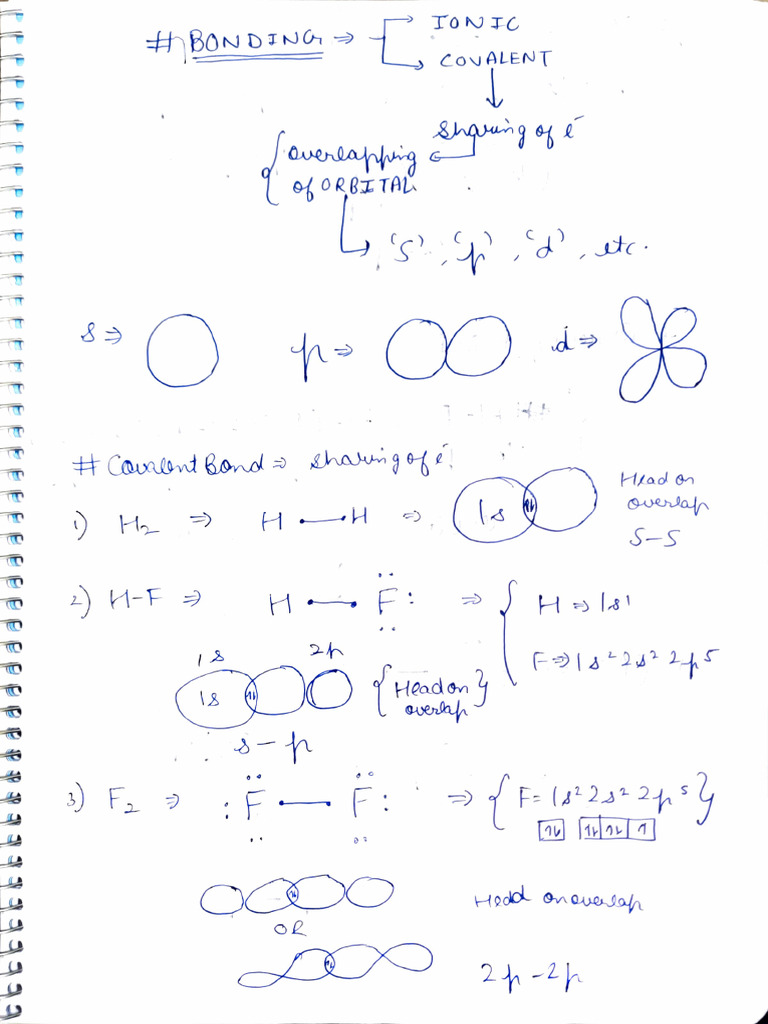 # BONDING ⇒ IONIC
COVALENT
sharing of e⁻
{overlapping
of ORBITAL
's', 'p', 'd', etc.
s ⇒ p ⇒ d ⇒
# Covalent Bond ⇒ sharing of e⁻
1) H₂ ⇒ H — H ⇒ 1s ⇅ Head on
overlap
s-s
2) H-F ⇒ H — F ⇒ { H ⇒ 1s¹
F ⇒ 1s² 2s² 2p⁵
1s 2p
1s ⇅ {Head on}
overlap
s - p
3) F₂ ⇒ :F — F: ⇒ {F = 1s² 2s² 2p⁵}
⇅ ⇅ ⇅ ↑
⇅ Head on overlap
OR
⇅ 2p - 2p